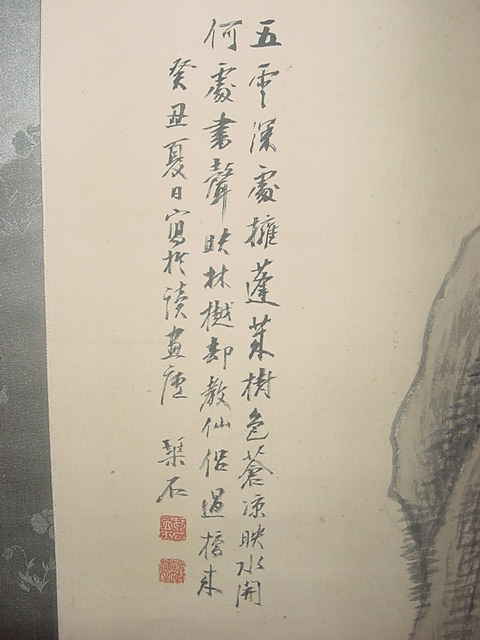 五雲深處擁蓬萊樹色蒼凉映水開
何處書聲映林樾却教仙侶過橋来
癸丑夏日寫於讀畫廬 琹石